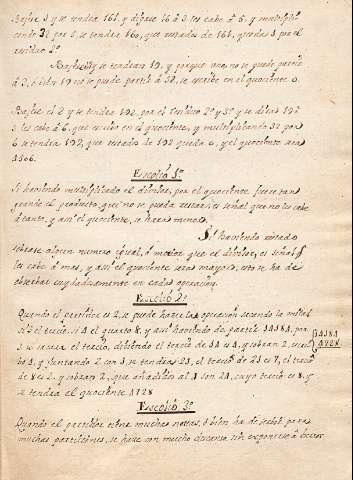 Bajese 1 y se tendra 161 y digase 16 á 3 les cabe á 5, y multipli
cando 32 por 5, se tendra 160, que restados de 161, queda 1 por el
residuo 2º
Bajese 9 y se tendran 19, y porque uno no se puede partir
á 3, ó bien 19 no se puede partir á 32, se escribe en el quociente 0.
Bajese el 2 y se tendra 192, por el residuo 2º y 3º y se dirá 19 á
3 les cabe á 6, que escrito en el quociente, y multiplicando 32 por
6 se tendra 192, que restados de 192 queda 0, y el quociente será
1506.
Escolio 1º
Si haviendo multiplicado el divisor, por el quociente fuere tan
grande el producto, que no se pueda restar, es señal que no les cabe
á tanto, y assi el quociente, se hará menor.
Si haviendo restado
sobrase algun numero igual, ó maior que el divisor, es señal q
les cabe á mas, y assi el quociente será mayor, esto se ha de
observar cuydadosamente en cada operacion.
Escolio 2º
Quando el partidor es 2, se puede hacer la operacion sacando la mitad
si 3 el tercio, si 4 el quarto &, y assi haviendo de partir 14184, por
3 se sacará el tercio, diciendo el tercio de 14 es 4, y sobran 2,
4, y juntando 2 con 1, se tendrá 21, el tercio de 21 es 7, el tercio
de 8 es 2, y sobran 2, que añadidos al 4 son 24, cuyo tercio es 8, y
se tendra el quociente 4728
14184
4728
Escolio 3º
Quando el partidor tiene muchas notas, ó bien ha de servir para
muchas particiones, se hace con mucho descanso, sin exponerse á errar